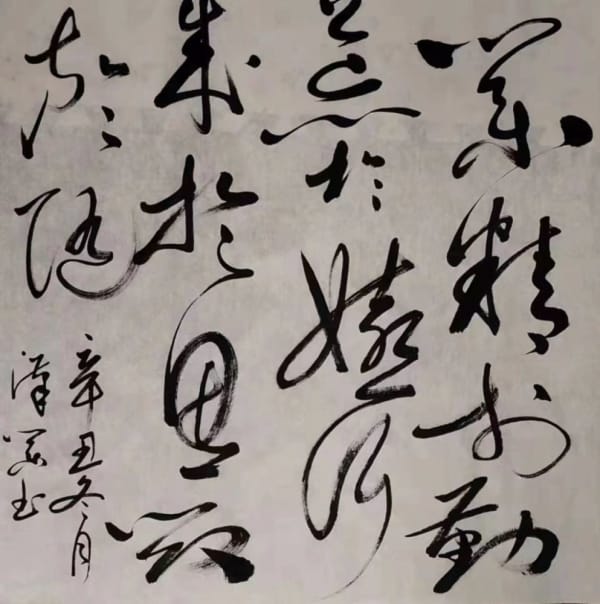 業精於勤
荒於嬉行
成於思毀
於随
辛丑冬月
漢书